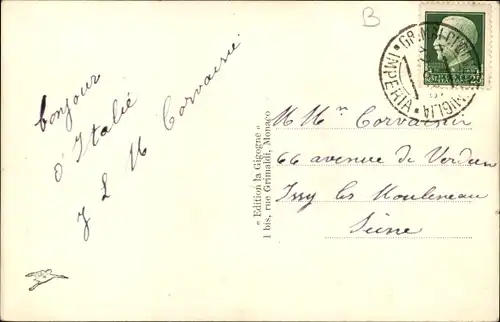 B
bonjour
d'Italie
J L M Corvaisie
« Edition la Gigogne »
1 bis, rue Grimaldi, Monaco
IMPERIA
M. Mme Corvaisier
66 avenue de Verdun
Issy les Moulineau
Seine